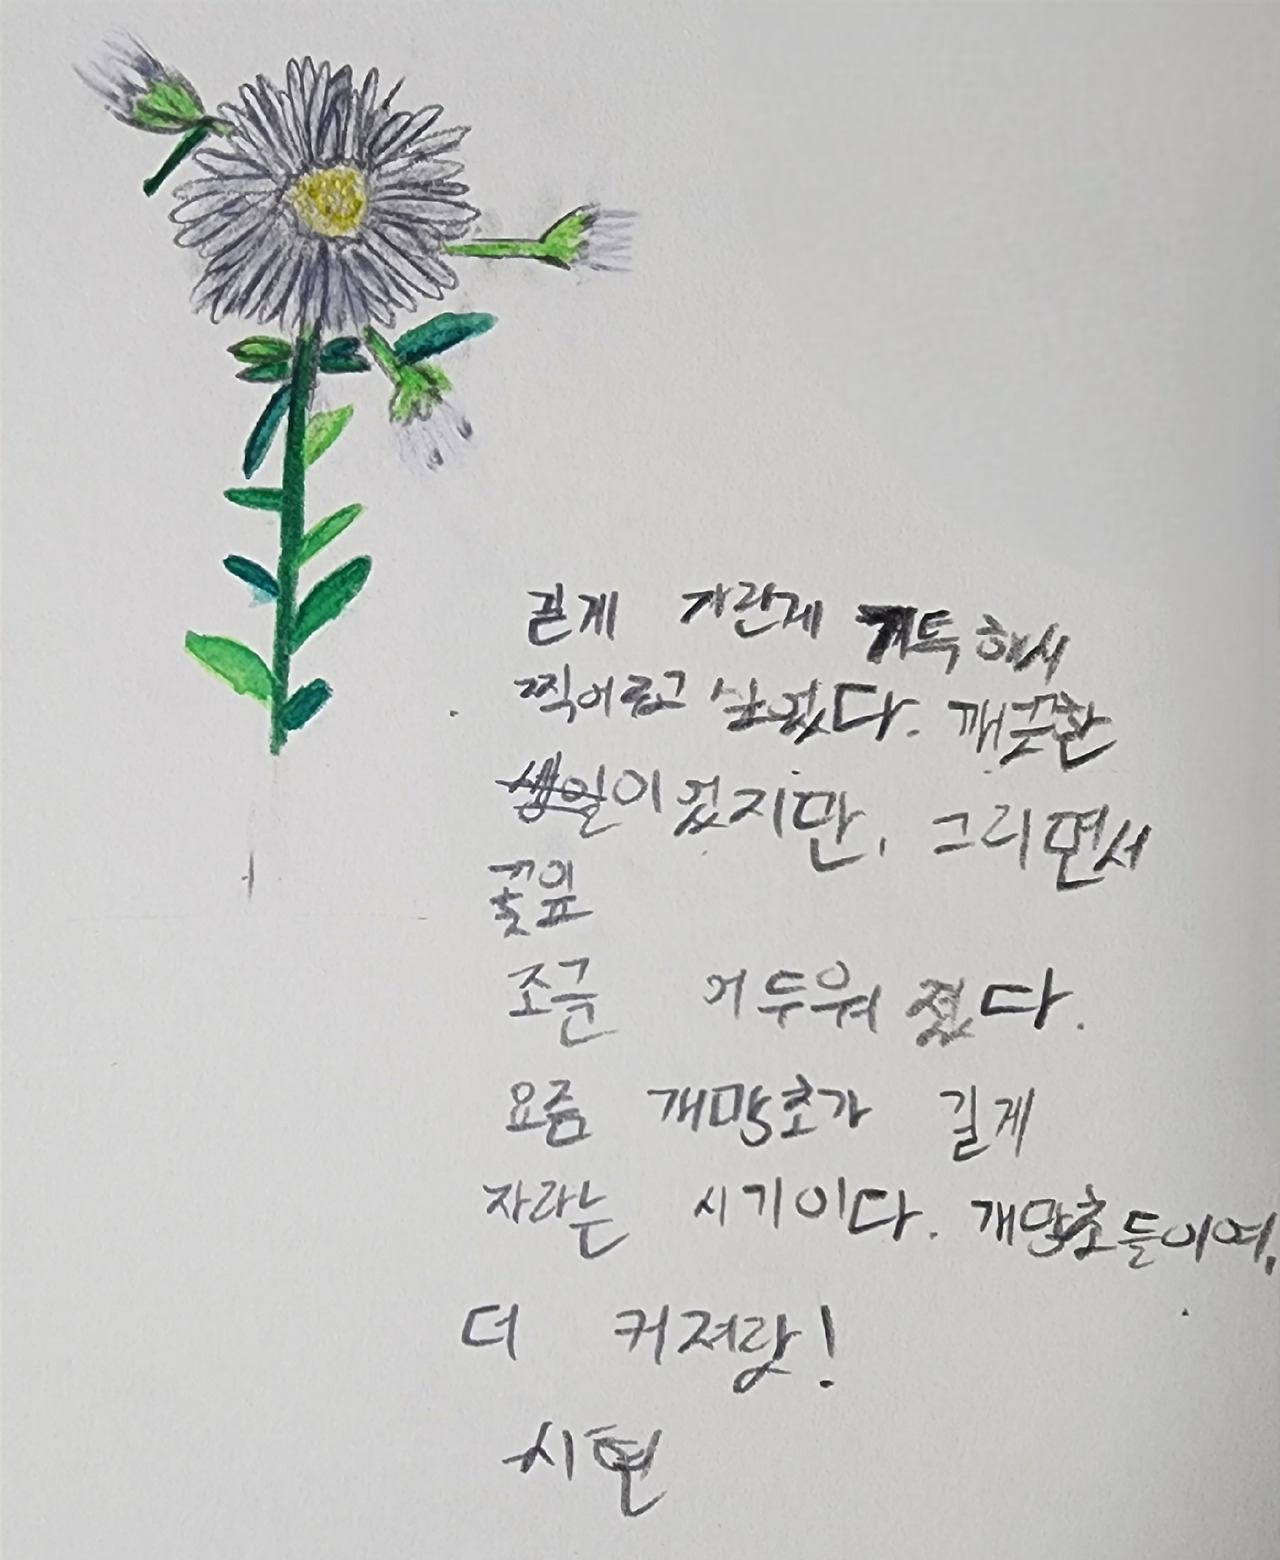 길게 자란게 기특해서
찍어주고 싶었다. 깨끗한
이었지만, 그리면서
꽃잎
조금 어두워 졌다.
요즘 개망초가 길게
자라는 시기이다. 개망초들이여,
더 커져랑!
시현